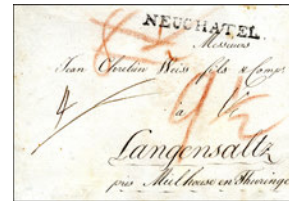 NEUCHATEL.
Messieurs
Jean Chretien Weiss fils & Comp.
à
4
Langensaltz
près Mulhouse en Thuringe